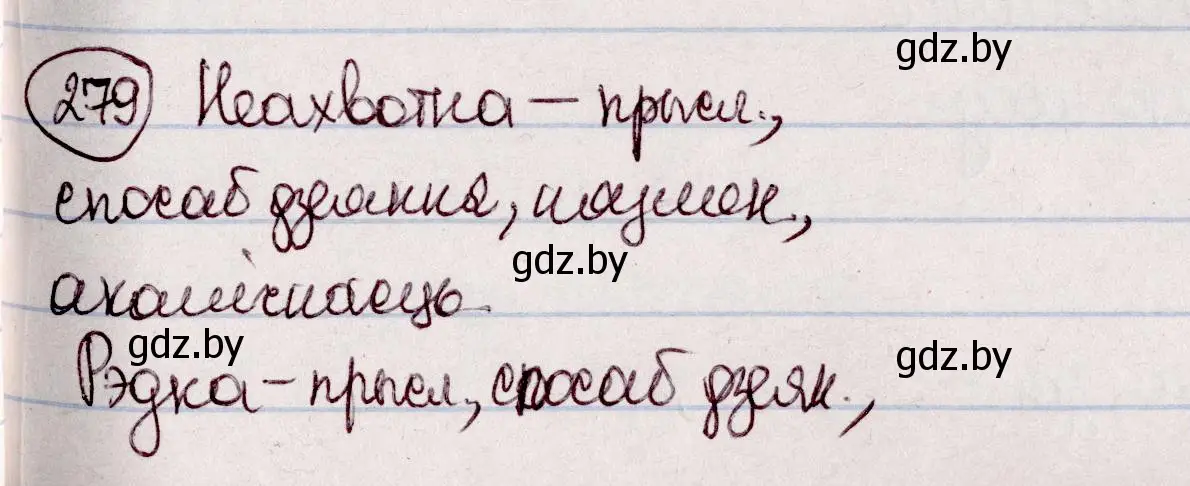 gdz.by
279 Неахвотна – прысл.,
спосаб дзеяння, нязмен.,
gdz.by
акалічнасць.
gdz.by
gdz.by
Рэдка – прысл., спосаб дзеян.,